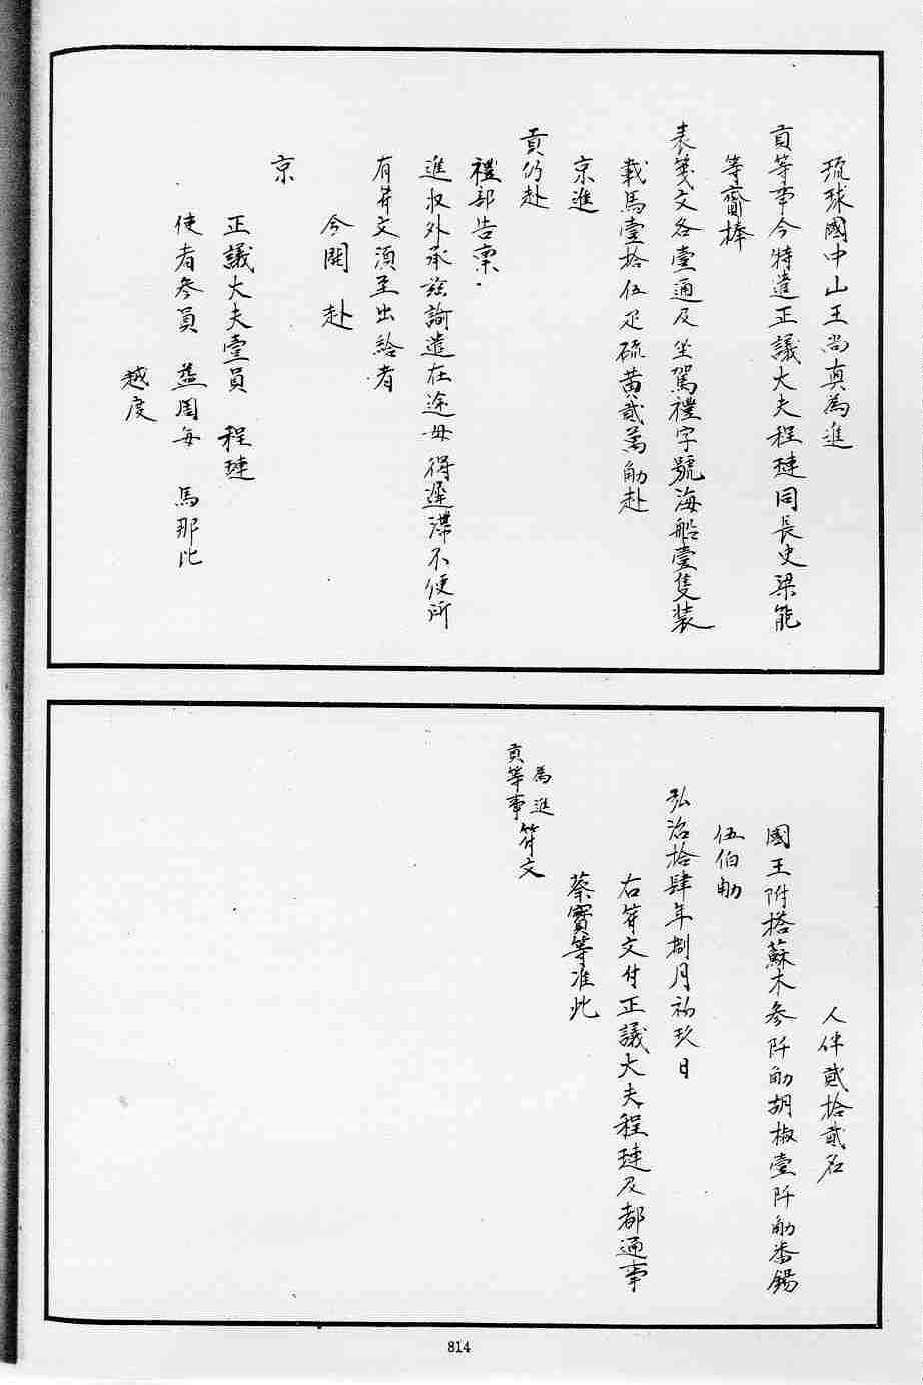 琉球國中山王尚真為進
貢等事今特遣正議大夫程璉同長史梁能
等齎捧
表箋文各壹通及坐駕禮字號海船壹隻装
載馬壹拾伍疋硫黄貳萬觔赴
京進
貢仍赴
禮部告稟
進収外承玆諭遣在途毋得遲滯不便所
有符文須至出給者
今開赴
京
正議大夫壹員 程璉
使者叁員 益周每 馬那比
越度
人伴貳拾貳名
國王附搭蘇木參阡觔胡椒壹阡觔番錫
伍伯觔
弘治拾肆年捌月初玖日
右符文付正議大夫程璉及都通事
蔡賓等准此
為進
貢等事符文
814